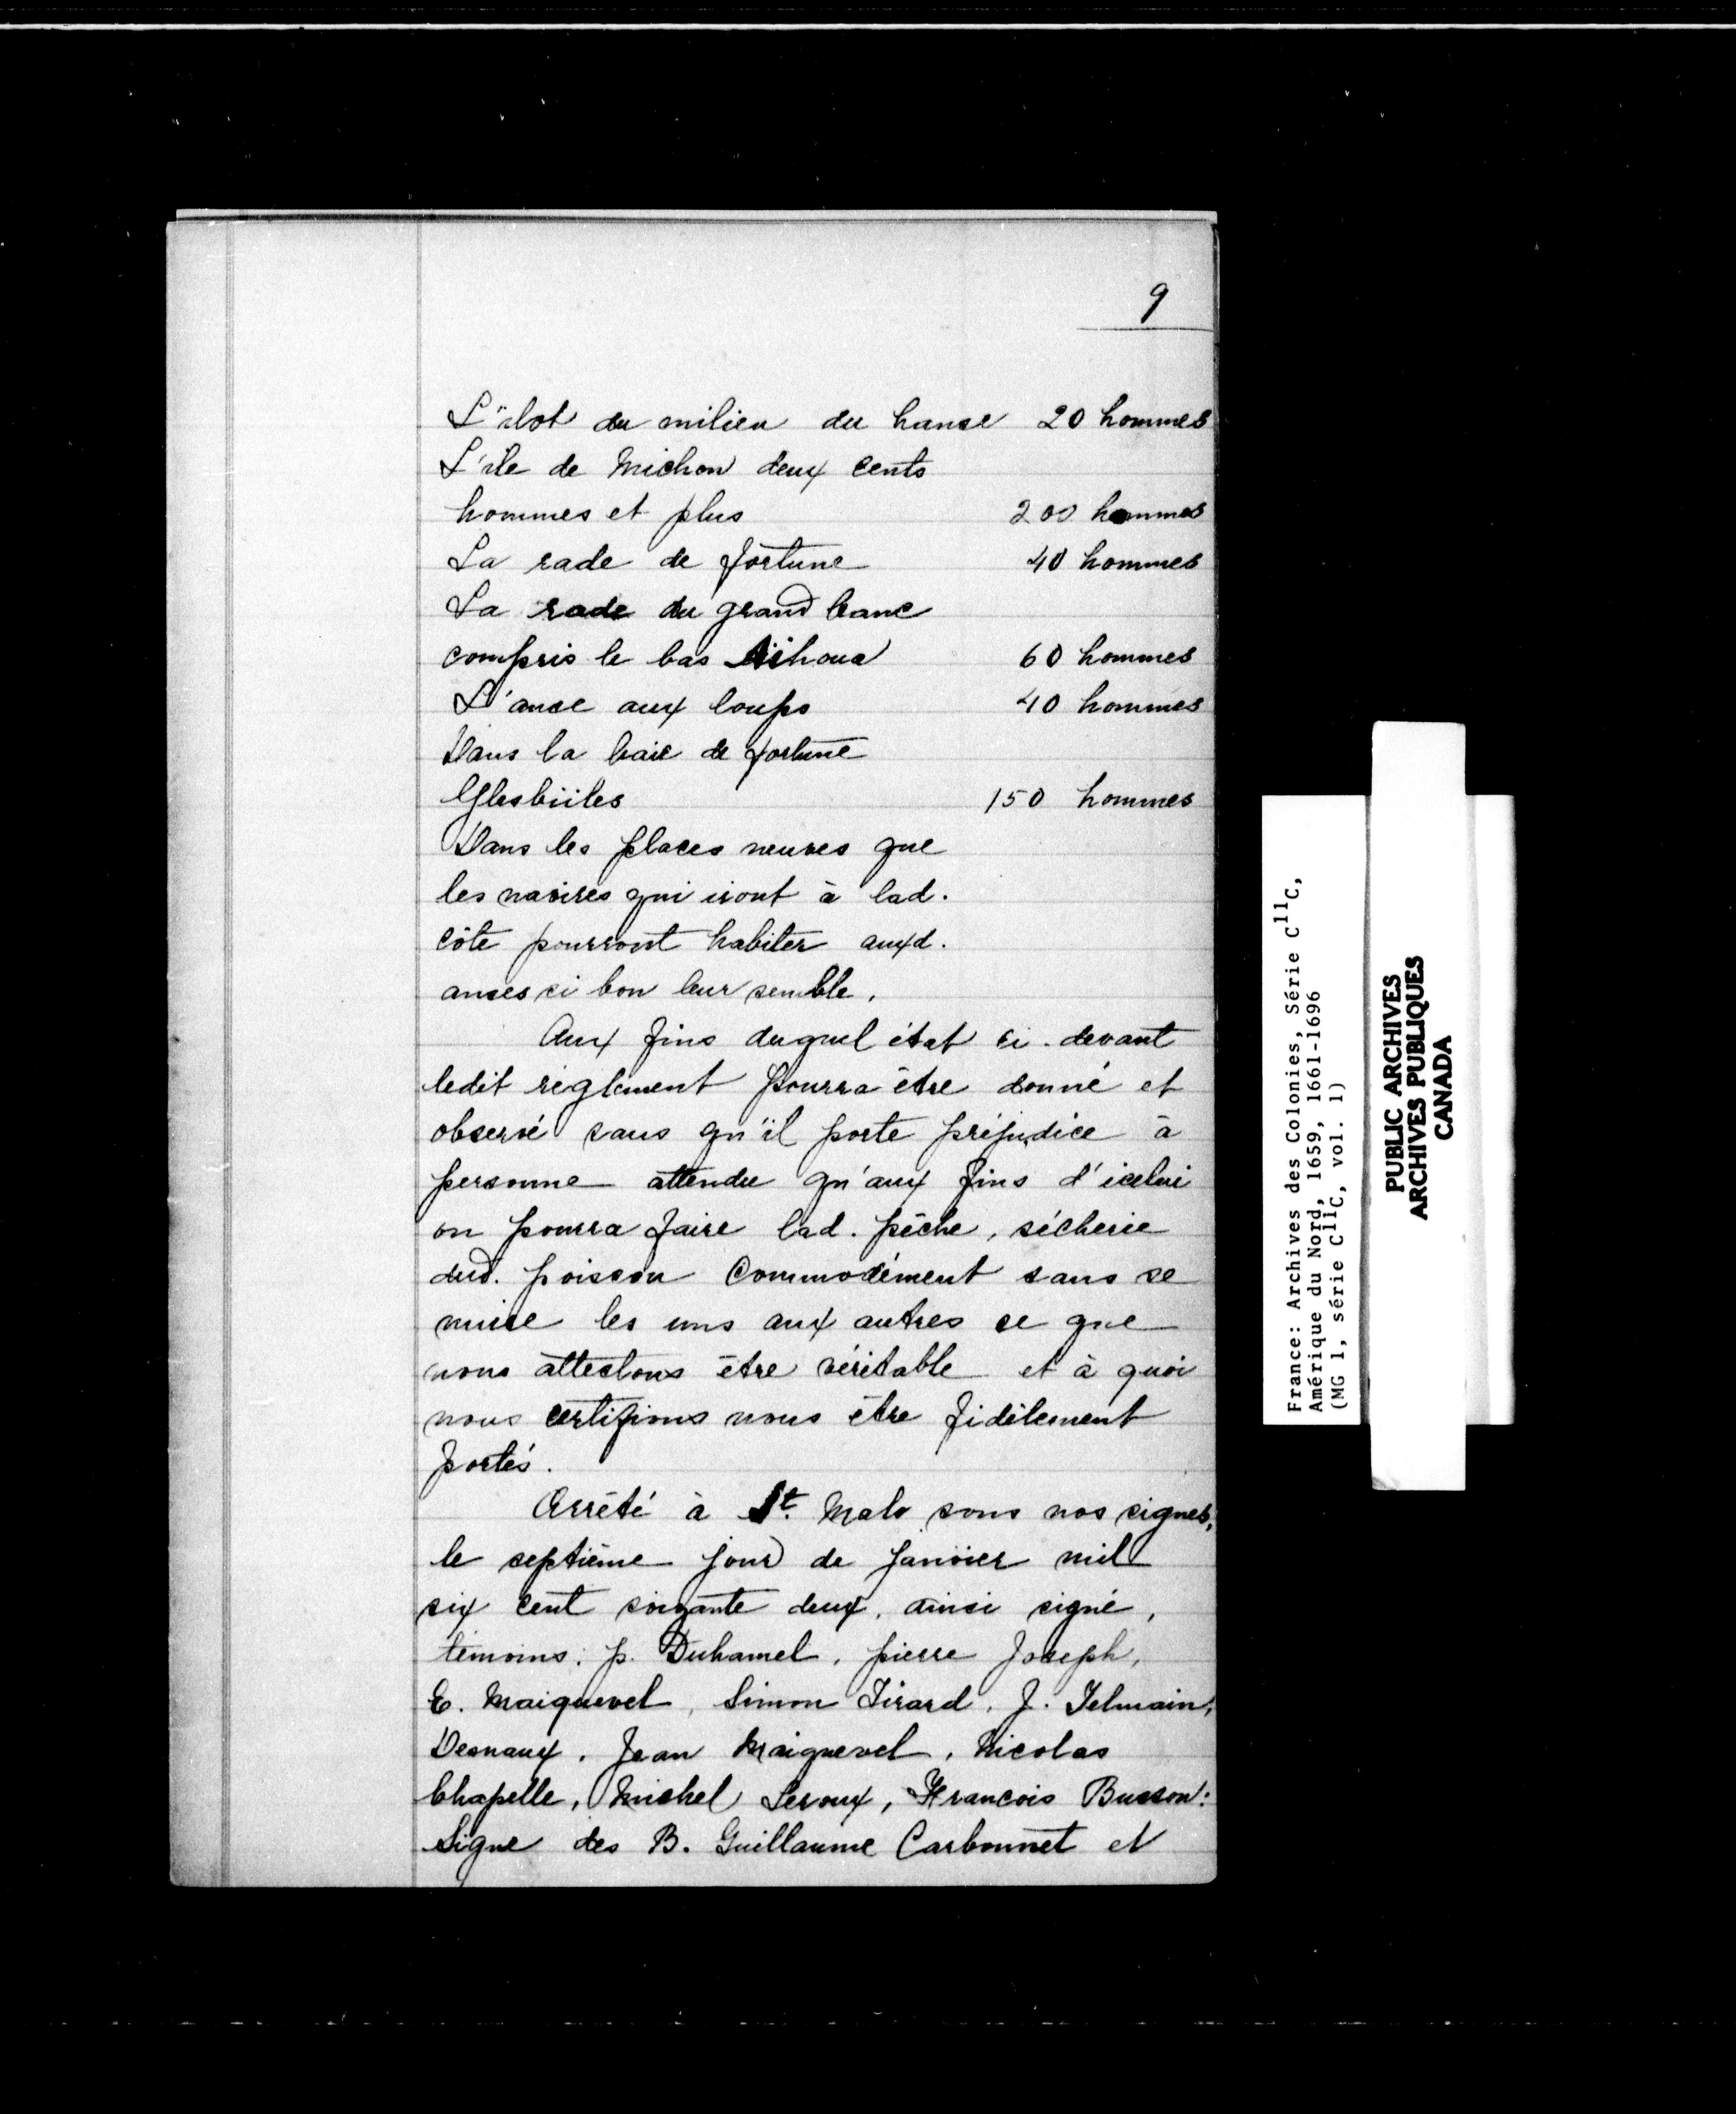 9
L'ilot du milieu du hanse 20 hommes
L'ile de Michon deux cents
hommes et plus 200 hommes
La rade de fortune 40 hommes
La rade du grand banc
compris le bas 60 hommes
L'anse aux loups 40 hommes
Dans la baie de fortune
150 hommes
Dans les places neuves que
les navires qui iront à lad.
côte pourront habiter auxd.
anses si bon leur semble.
Aux fins duquel état ci-devant
ledit règlement pourra être donné et
observé sans qu'il porte préjudice à
personne attendu qu'aux fins d'icelui
on pourra faire lad. pêche, sècherie
dud. poisson commodément sans se
nuire les uns aux autres ce que
nous attestons être véritable et à quoi
nous certifions nous être fidèlement
portés.
Arrêté à St. Malo sous nos signes,
le septième jour de janvier mil
six cent soixante deux, ainsi signé,
témoins: p. Duhamel, pierre Joseph,
E. Maiquevel, Simon Tirard, J. Jelmain,
Desnaux, Jean Maiquevel, Nicolas
Chapelle, Michel Leroux, Francois Busson:
Signe des B. Guillaume Carbonnet et
France: Archives des Colonies, Série C11C,
Amérique du Nord, 1659, 1661-1696
(MG 1, série C11C, vol. 1)
PUBLIC ARCHIVES
ARCHIVES PUBLIQUES
CANADA